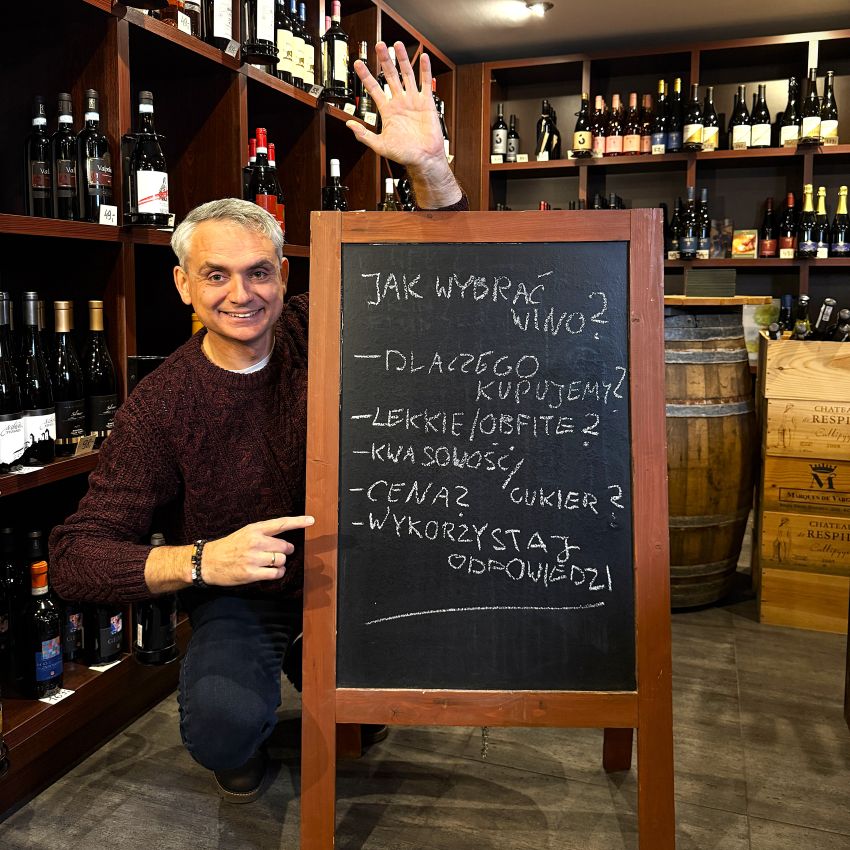 JAK WYBRAĆ
WINO?
- DLACZEGO
KUPUJEMY?
- LEKKIE/OBFITE?
- KWASOWOŚĆ/
CUKIER?
- CENA?
- WYKORZYSTAJ
ODPOWIEDZI
CHATEAU
DE RESPI
M
MARQUES DE VARG
CHATEAU
DE RESPI
49,-